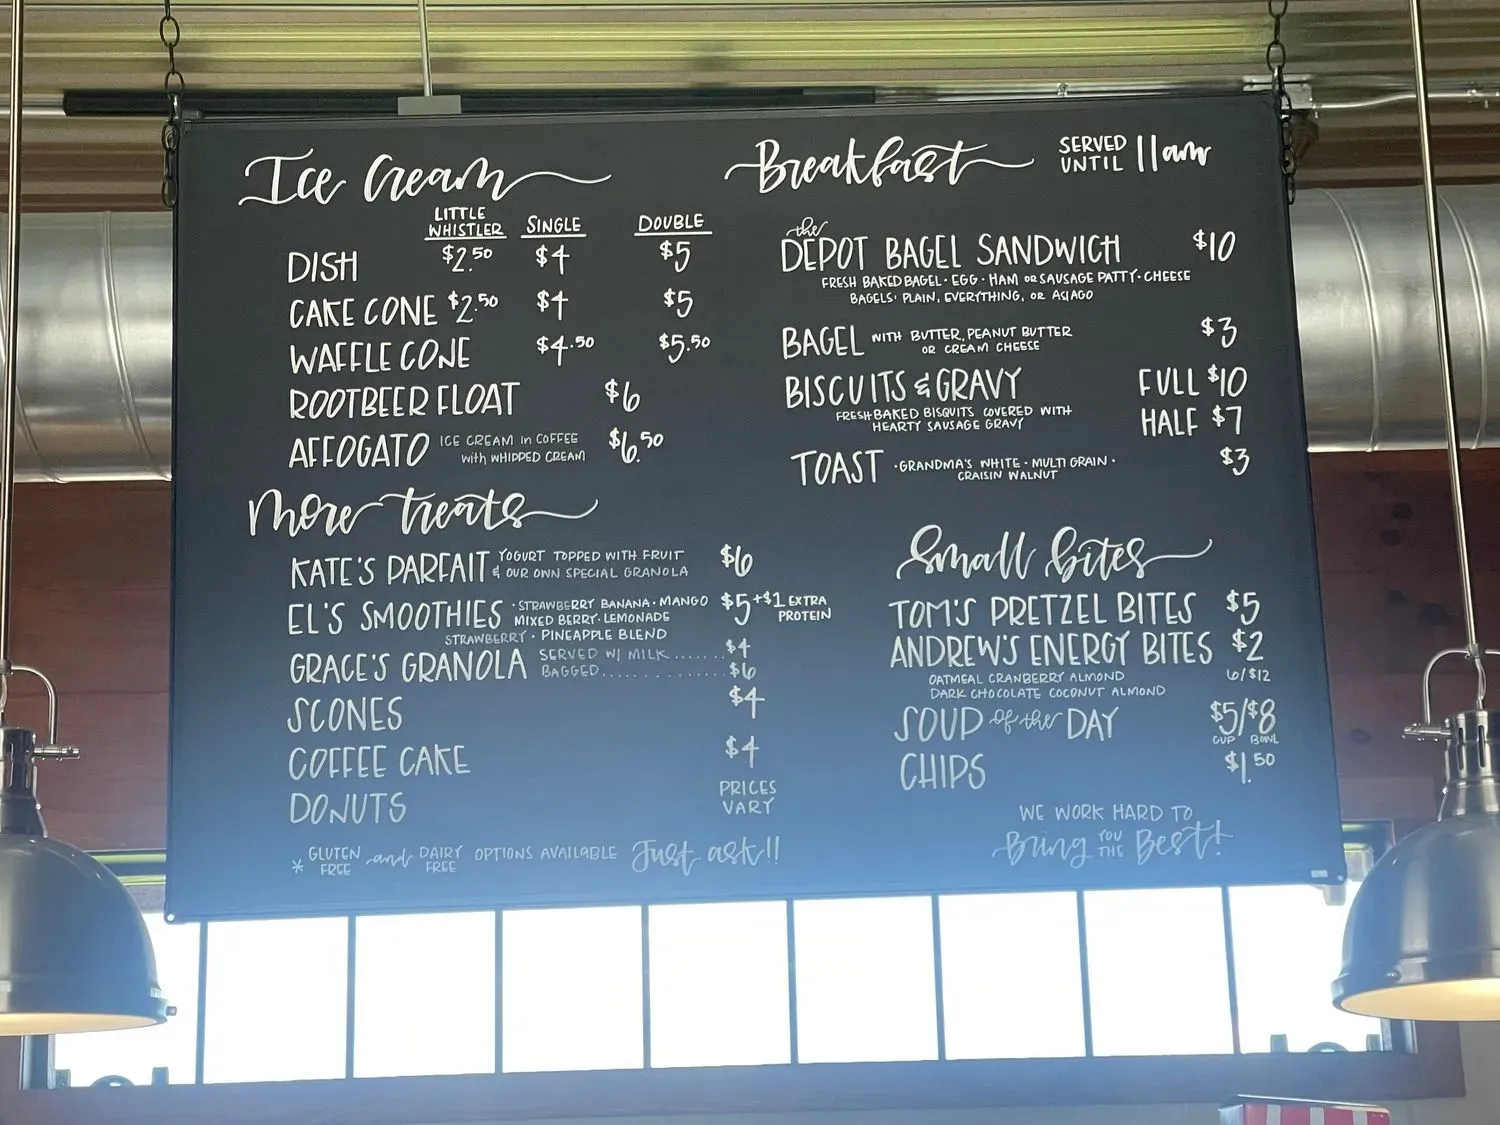 Ice Cream
LITTLE WHISTLER SINGLE DOUBLE
DISH $2.50 $4 $5
CAKE CONE $2.50 $4 $5
WAFFLE CONE $4.50 $5.50
ROOTBEER FLOAT $6
AFFOGATO ICE CREAM in COFFEE with WHIPPED CREAM $6.50
More treats
KATE'S PARFAIT YOGURT TOPPED WITH FRUIT & OUR OWN SPECIAL GRANOLA $6
EL'S SMOOTHIES · STRAWBERRY BANANA · MANGO $5 +$1 EXTRA PROTEIN
MIXED BERRY · LEMONADE
STRAWBERRY · PINEAPPLE BLEND
GRACE'S GRANOLA SERVED W/ MILK ...... $4
BAGGED............ $6
SCONES $4
COFFEE CAKE $4
DONUTS PRICES VARY
* GLUTEN FREE and DAIRY FREE OPTIONS AVAILABLE Just ask!!
Breakfast SERVED UNTIL 11am
the DEPOT BAGEL SANDWICH $10
FRESH BAKED BAGEL · EGG · HAM OR SAUSAGE PATTY · CHEESE
BAGELS: PLAIN, EVERYTHING, OR ASIAGO
BAGEL WITH BUTTER, PEANUT BUTTER OR CREAM CHEESE $3
BISCUITS & GRAVY FULL $10
FRESH BAKED BISQUITS COVERED WITH HALF $7
HEARTY SAUSAGE GRAVY
TOAST · GRANDMA'S WHITE · MULTI GRAIN · $3
CRAISIN WALNUT
Small bites
TOM'S PRETZEL BITES $5
ANDREW'S ENERGY BITES $2
OATMEAL CRANBERRY ALMOND 6/$12
DARK CHOCOLATE COCONUT ALMOND
SOUP of the DAY $5/$8
CUP BOWL
CHIPS $1.50
WE WORK HARD TO
Bring YOU THE Best!